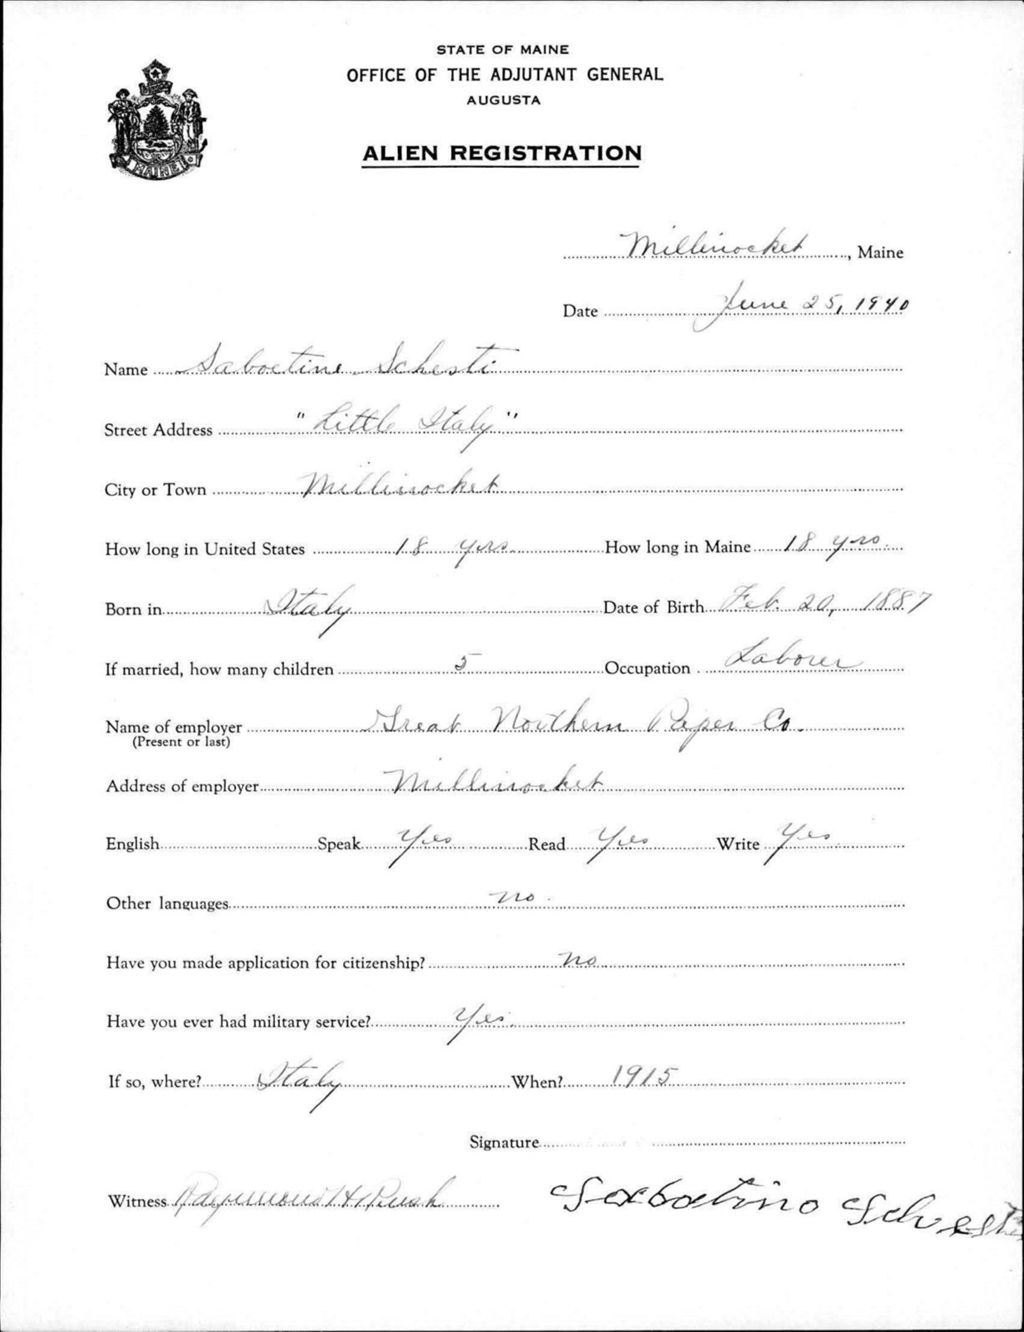 STATE OF MAINE
OFFICE OF THE ADJUTANT GENERAL
AUGUSTA
ALIEN REGISTRATION
MAINE
Millinocket, Maine
Date June 25, 1940
Name Saboetine Schesti
Street Address "Little Italy"
City or Town Millinocket
How long in United States 18 yrs. How long in Maine 18 yrs.
Born in Italy Date of Birth Feb. 20, 1887
If married, how many children 5 Occupation Laborer
Name of employer Great Northern Paper Co.
(Present or last)
Address of employer Millinocket
English Speak Yes Read Yes Write Yes
Other languages no.
Have you made application for citizenship? No
Have you ever had military service? Yes.
If so, where? Italy When? 1915
Signature
Witness Raymond H. Rush Saboetino Schesti